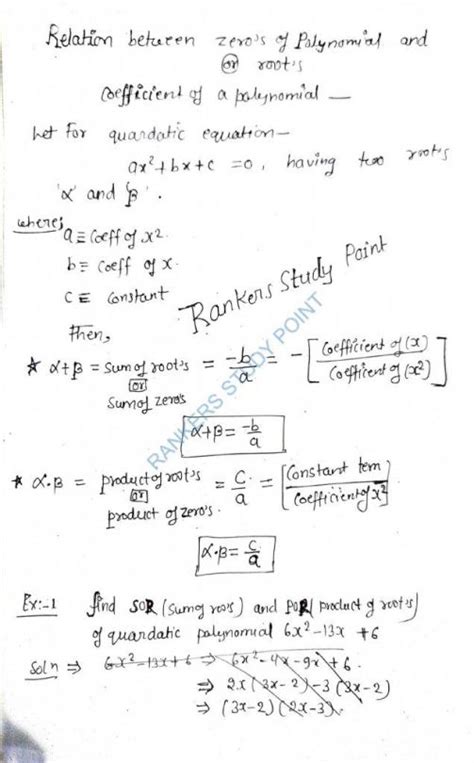 Relation between zero's of Polynomial and
or root's
Coefficient of a polynomial —
Let For quardatic equation —
ax²+bx+c =0, having two root's
'α' and 'β'.
where;
a ≡ Coeff of x².
b ≡ coeff of x.
c ≡ Constant
Then,
Rankers Study Point
RANKERS STUDY POINT
* α+β = sum of root's = -b/a = -[Coefficient of (x)/Coefficient of (x²)]
or
Sum of zero's
α+β = -b/a
* α.β = product of root's = c/a = [Constant tem/Coefficient of x²]
or
product of zero's.
α.β = c/a
Ex:-1 find SOR (sum of roo's) and POR( product of root's)
of quardatic polynomial 6x²-13x +6
Soln ⇒ 6x²-13x+6 ⇒ 6x²-4x-9x+6.
⇒ 2x(3x-2)-3(3x-2)
⇒ (3x-2)(2x-3).